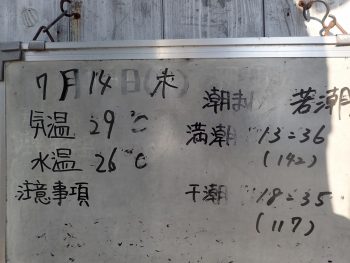 7月14日(木
気温 29℃
水温 26℃
注意事項
潮まわ 若潮
満潮 13:36
(142)
干潮 18:35
(117)